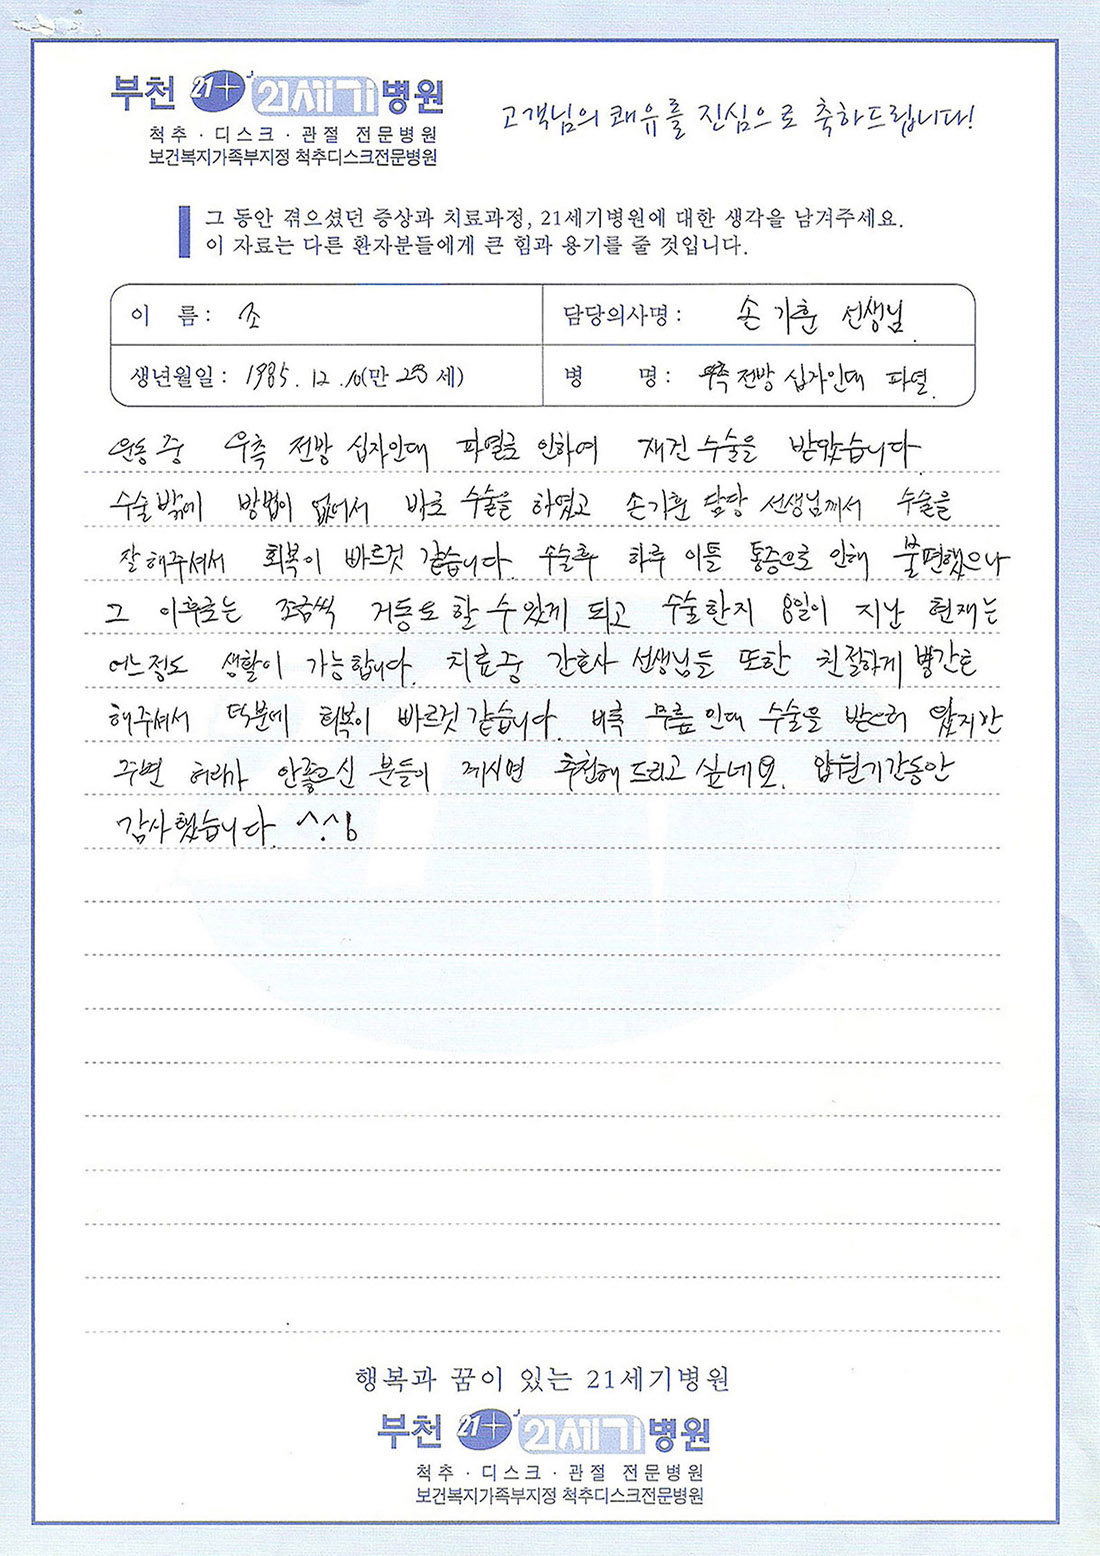 부천 21+ 21세기병원
척추 · 디스크 · 관절 전문병원
보건복지가족부지정 척추디스크전문병원
고객님의 쾌유를 진심으로 축하드립니다!
그 동안 겪으셨던 증상과 치료과정, 21세기병원에 대한 생각을 남겨주세요.
이 자료는 다른 환자분들에게 큰 힘과 용기를 줄 것입니다.
이 름 : 조
담당의사명 : 손기훈 선생님.
생년월일 : 1985. 12. 10(만 23 세)
병 명 : 우측 전방 십자인대 파열.
운동 중 우측 전방 십자인대 파열로 인하여 재건 수술을 받았습니다.
수술밖에 방법이 없어서 바로 수술을 하였고 손기훈 담당 선생님께서 수술을
잘해주셔서 회복이 빠른것 같습니다. 수술후 하루 이틀 통증으로 인해 불편했으나
그 이후로는 조금씩 거동도 할 수 있게 되고 수술한지 8일이 지난 현재는
어느정도 생활이 가능합니다. 치료중 간호사 선생님들 또한 친절하게 병간호
해주셔서 덕분에 회복이 빠른것 같습니다. 비록 무릎인대 수술을 받으러 왔지만
주변 허리가 안좋으신 분들이 계시면 추천해 드리고 싶네요. 입원기간동안
감사했습니다. ^.^
행복과 꿈이 있는 21세기병원
부천 21+ 21세기병원
척추 · 디스크 · 관절 전문병원
보건복지가족부지정 척추디스크전문병원